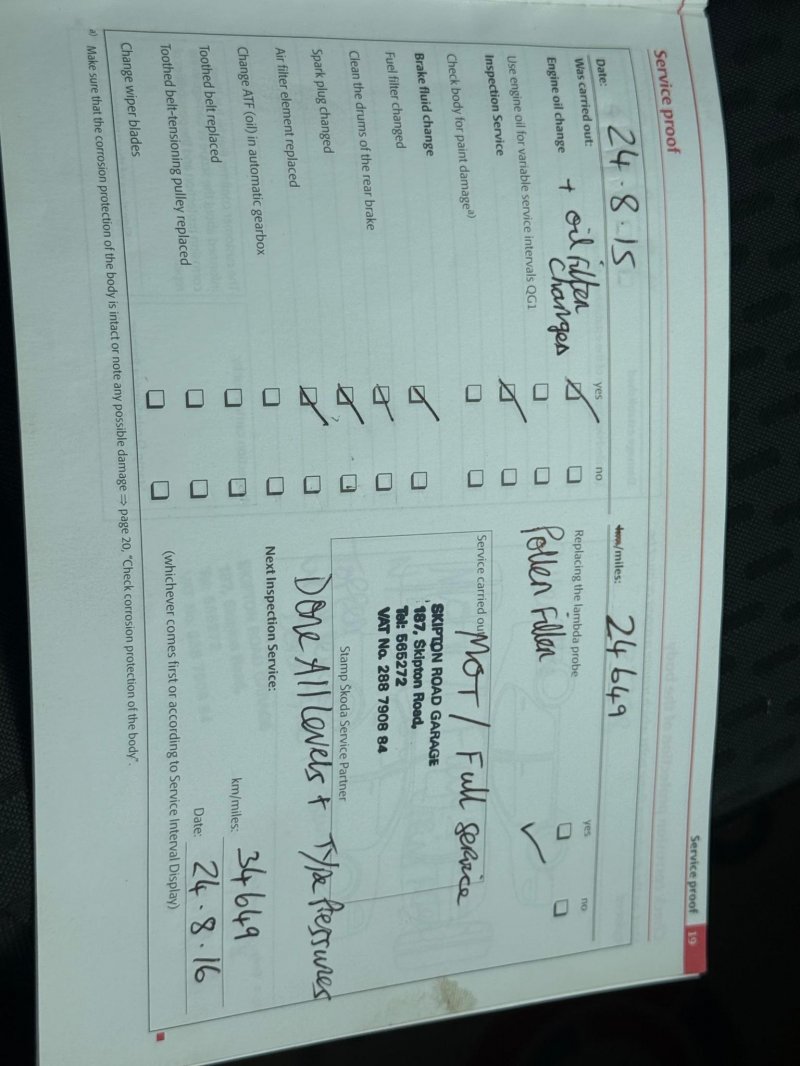 Service proof 19
Service proof
Date: 24.8.15
km/miles: 24649
Was carried out:
yes
no
Engine oil change + oil filter changes
Use engine oil for variable service intervals QG1
Inspection Service
Check body for paint damage a)
Brake fluid change
Fuel filter changed
Clean the drums of the rear brake
Spark plug changed
Air filter element replaced
Change ATF (oil) in automatic gearbox
Toothed belt replaced
Toothed belt-tensioning pulley replaced
Change wiper blades
yes
no
Replacing the lambda probe
Pollen Filter ✓
Service carried out MOT / Full service
SKIPTON ROAD GARAGE
187, Skipton Road,
Tel: 565272
VAT No. 288 7908 84
Stamp Škoda Service Partner
Done All levels + Tyre Pressures
Next Inspection Service:
km/miles: 34649
Date: 24.8.16
(whichever comes first or according to Service Interval Display)
a) Make sure that the corrosion protection of the body is intact or note any possible damage ⇒ page 20, "Check corrosion protection of the body".